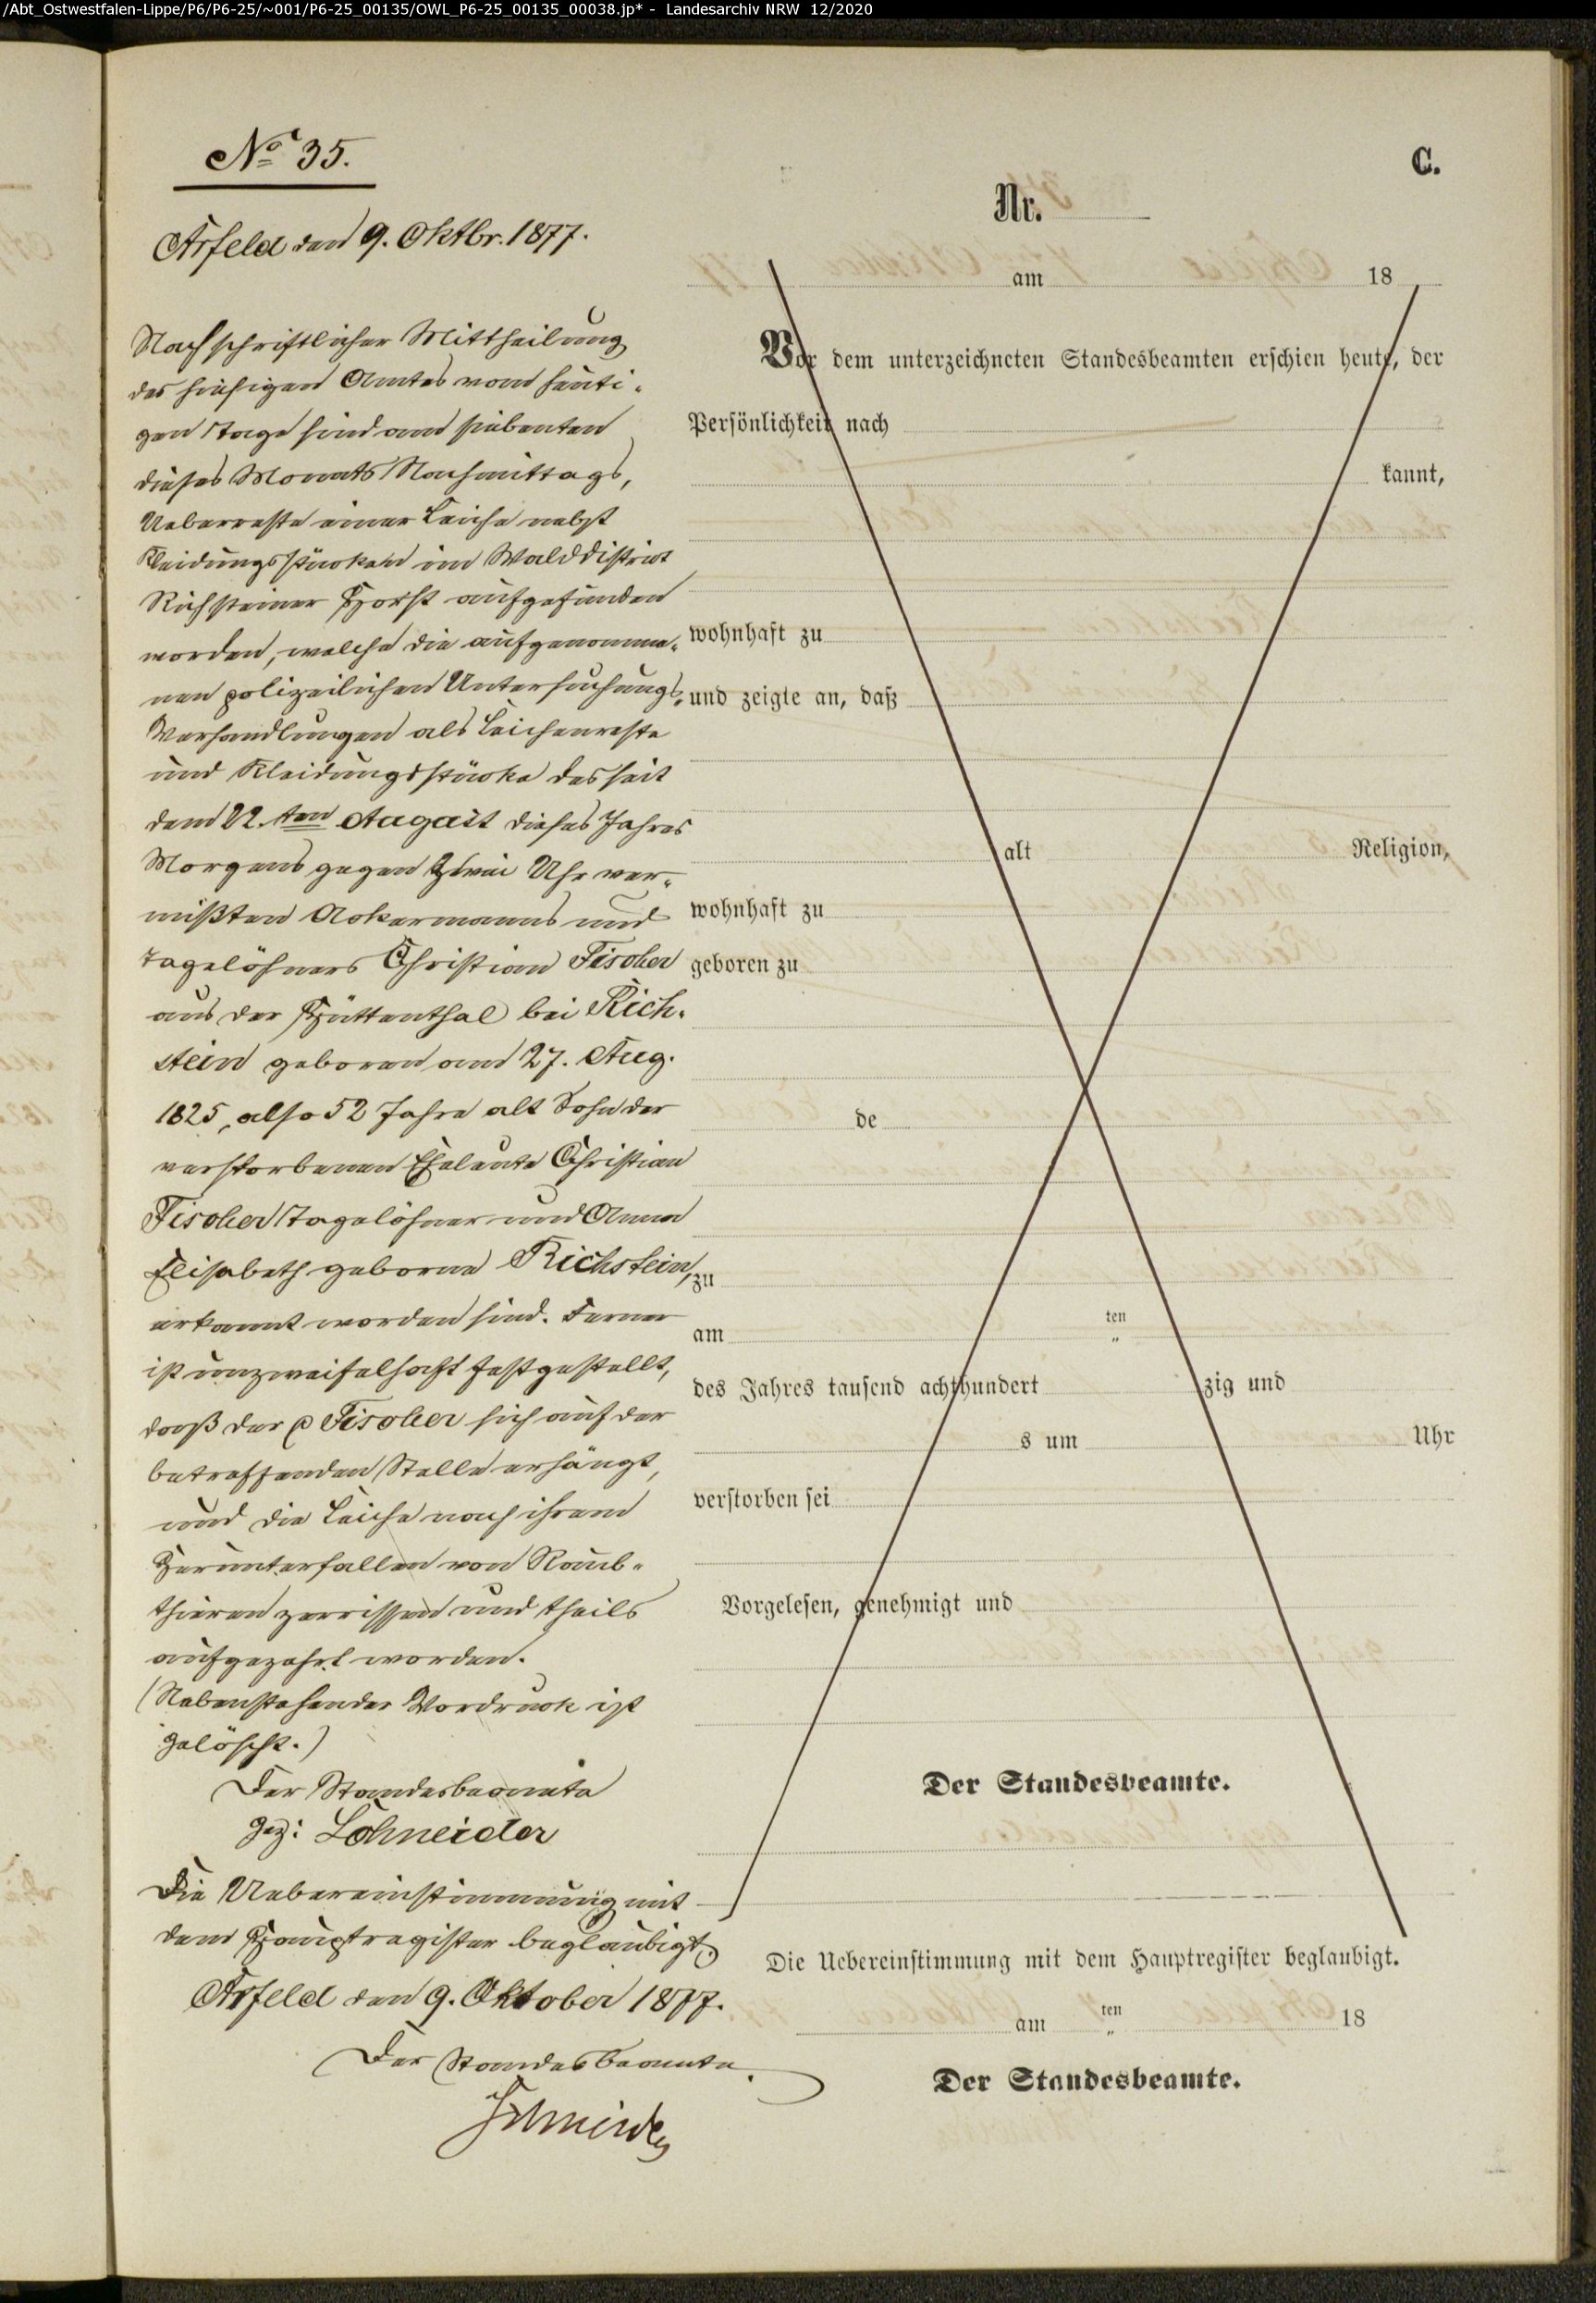 /Abt_Ostwestfalen-Lippe/P6/P6-25/~001/P6-25_00135/OWL_P6-25_00135_00038.jp* - Landesarchiv NRW 12/2020
No 35.
Arfeld den 9. Oktbr. 1877.
Nach schriftlicher Mittheilung
des hiesigen Amtes vom heuti-
gen Tage sind am siebenten
dieses Monats Nachmittags,
Ueberreste einer Leiche nebst
Kleidungsstücken im Walddistrict
Richsteiner Horst aufgefunden
worden, welche die aufgenomme-
nen polizeilichen Untersuchungs-
Verhandlungen als Leichenreste
und Kleidungsstücke des seit
dem 22.ten August dieses Jahres
Morgens gegen zwei Uhr ver-
mißten Ackermanns und
Tagelöhners Christian Fischer
aus der Hüttenthal bei Rich-
stein geboren am 27. Aug.
1825, also 52 Jahre alt Sohn der
verstorbenen Eheleute Christian
Fischer Tagelöhner und Anna
Elisabeth geborne Richstein,
erkannt worden sind. Ferner
ist unzweifelhaft festgestellt,
daß der p Fischer sich auf der
betreffenden Stelle erhängt,
und die Leiche nach ihrem
Herunterfallen von Raub-
thieren zerrissen und theils
aufgezehrt worden.
(Nebenstehender Vordruck ist
gelöscht.)
Der Standesbeamte
gez: Schneider
Die Uebereinstimmung mit
dem Hauptregister beglaubigt,
Arfeld den 9. Oktober 1877.
Der Standesbeamte.
Schneider
C.
Nr.
am 18
Vor dem unterzeichneten Standesbeamten erschien heute, der
Persönlichkeit nach
kannt,
wohnhaft zu
und zeigte an, daß
alt Religion,
wohnhaft zu
geboren zu
de
zu
am ten "
des Jahres tausend achthundert zig und
s um Uhr
verstorben sei
Vorgelesen, genehmigt und
Der Standesbeamte.
Die Uebereinstimmung mit dem Hauptregister beglaubigt.
am ten " 18
Der Standesbeamte.